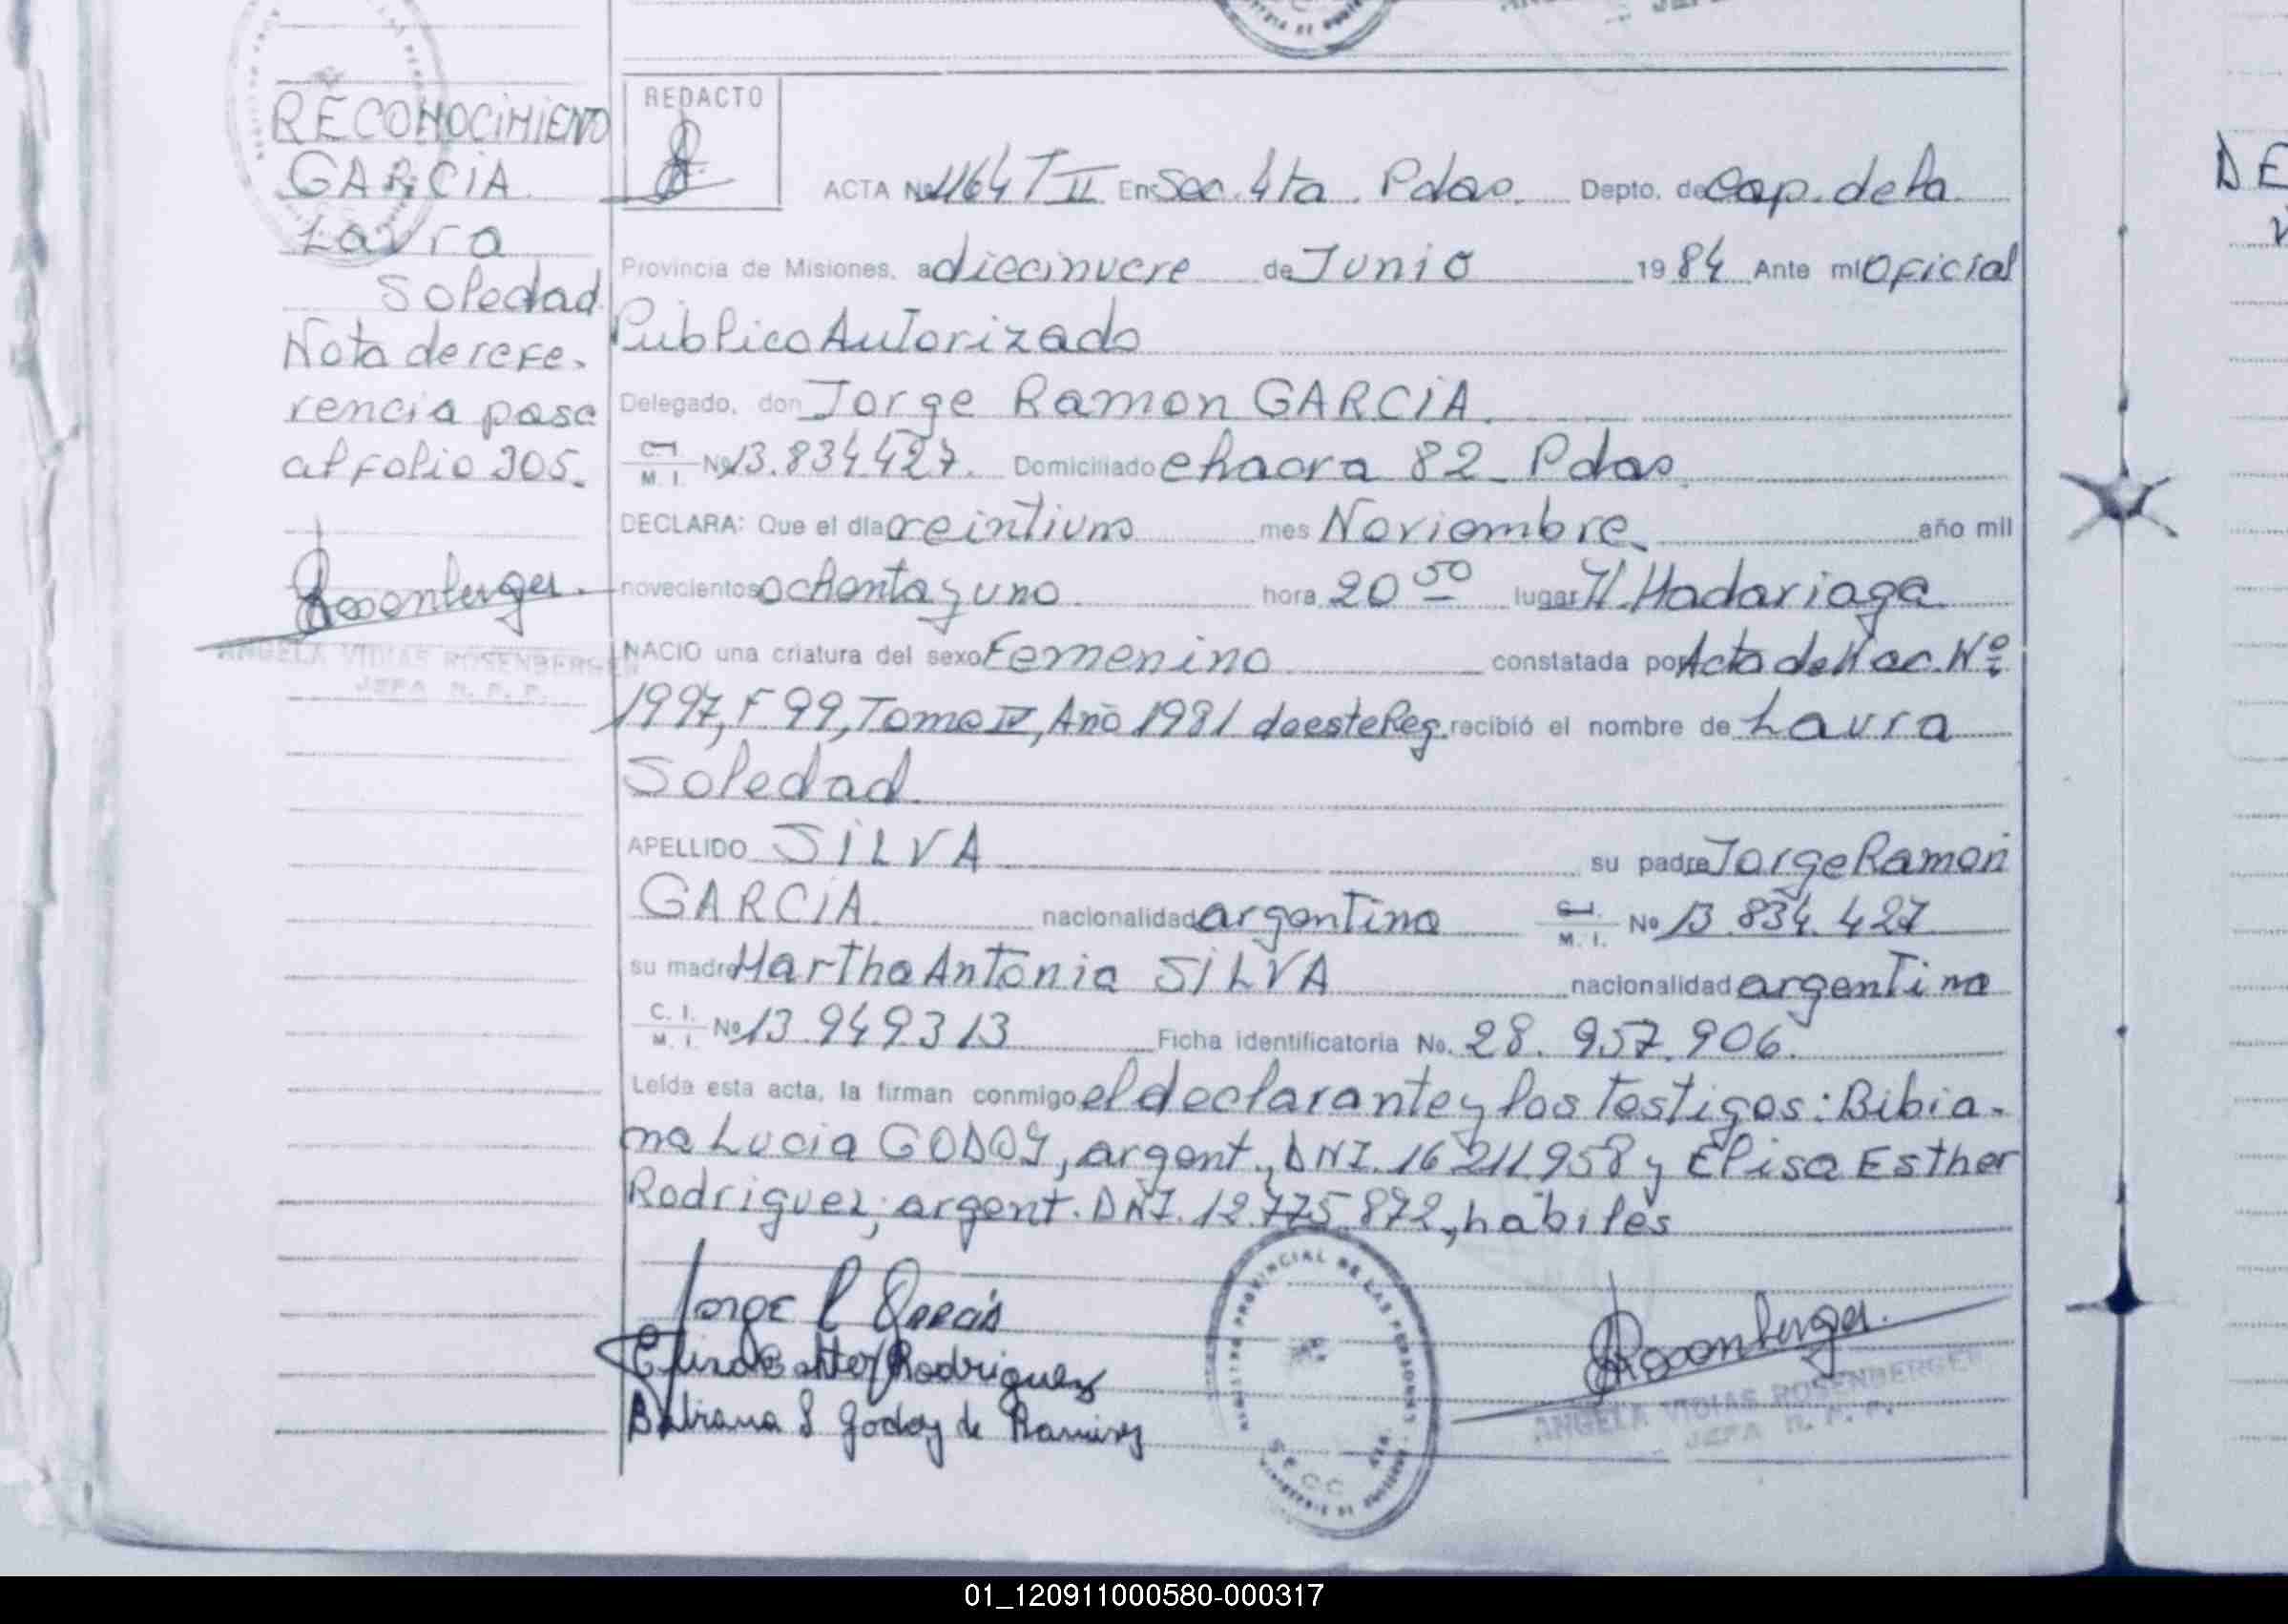 RECONOCIMIENTO
GARCIA
Laura
Soledad
Nota de refe-
rencia pasa
al folio 305.
Rosenberger.
ANGELA VIDIAS ROSENBERGER
JEFA R. P. P.
REDACTO
ACTA Nº 1164 T II En Sec. 4ta. Pdas. Depto. de Cap. de la
Provincia de Misiones, a diecinueve de Junio 19 84 Ante mi Oficial
Publico Autorizado
Delegado, don Jorge Ramon GARCIA.
C. I. M. I. Nº 13.834.427. Domiciliado chacra 82 - Pdas.
DECLARA: Que el día veintiuno mes Noviembre año mil
novecientos ochenta y uno hora 20 50 lugar H. Madariaga
NACIO una criatura del sexo Femenino constatada por Acta de Nac. Nº
1997, F 99, Tomo IV, Año 1981 de este Reg. recibió el nombre de Laura
Soledad
APELLIDO SILVA su padre Jorge Ramon
GARCIA. nacionalidad argentino C. I. M. I. Nº 13.834.427
su madre Martha Antonia SILVA nacionalidad argentina
C. I. M. I. Nº 13.949313 Ficha identificatoria No. 28.957.906.
Leída esta acta, la firman conmigo el declarante y los Testigos: Bibia-
na Lucia GODOY, argent., DNI. 16.211.958 y Elisa Esther
Rodriguez, argent. DNI. 12.775.872, habiles
Jorge R Garcia
Elisa Esther Rodriguez
Bibiana L Godoy de Ramirez
REGISTRO PROVINCIAL DE LAS PERSONAS
SECC 4ta.
Rosenberger.
ANGELA VIDIAS ROSENBERGER
JEFA R. P. P.
DE
01_120911000580-000317